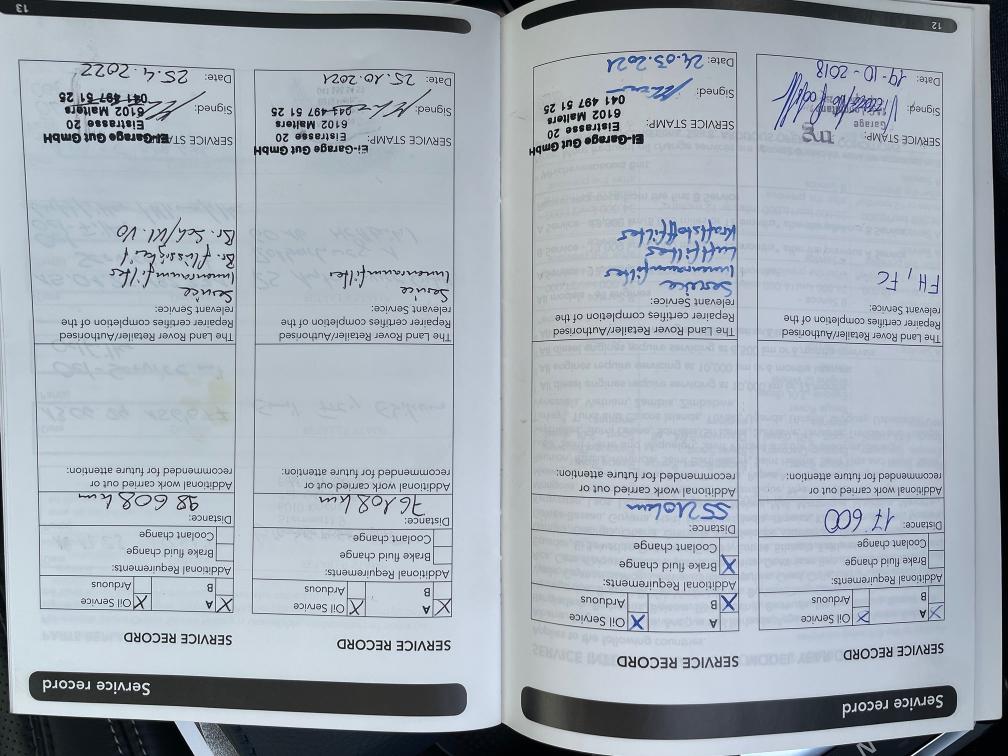 Service record
SERVICE RECORD
A
Oil Service
B
Arduous
Additional Requirements:
Brake fluid change
Coolant change
Distance: 17 600
Additional work carried out or
recommended for future attention:
The Land Rover Retailer/Authorised
Repairer certifies completion of the
relevant Service:
FH, FC
SERVICE STAMP:
Garage
Signed:
Date: 19-10-2018
12
SERVICE RECORD
A
Oil Service
B
Arduous
Additional Requirements:
Brake fluid change
Coolant change
Distance: 55210 km
Additional work carried out or
recommended for future attention:
The Land Rover Retailer/Authorised
Repairer certifies the completion of the
relevant Service:
Service
Innenraumfilter
Luftfilter
Kraftstofffilter
SERVICE STAMP:
Ei-Garage Gut GmbH
Eistrasse 20
6102 Malters
041 497 51 25
Signed:
Date: 24.03.2021
Service record
SERVICE RECORD
A
Oil Service
B
Additional Requirements:
Brake fluid change
Coolant change
Distance: 76108 km
Additional work carried out or
recommended for future attention:
The Land Rover Retailer/Authorised
Repairer certifies the completion of the
relevant Service:
Service
Innenraumfilter
SERVICE STAMP:
Ei-Garage Gut GmbH
Eistrasse 20
6102 Malters
041 497 51 25
Signed:
Date: 25.10.2021
SERVICE RECORD
A
Oil Service
B
Arduous
Additional Requirements:
Brake fluid change
Coolant change
Distance: 98 608 km
Additional work carried out or
recommended for future attention:
The Land Rover Retailer/Authorised
Repairer certifies the completion of the
relevant Service:
Service
Innenraumfilter
Br. flüssigkeit
Br. Sch/Kl. VO
SERVICE STAMP:
Ei-Garage Gut GmbH
Eistrasse 20
6102 Malters
041 497 51 25
Signed:
Date: 25.4.2022
13